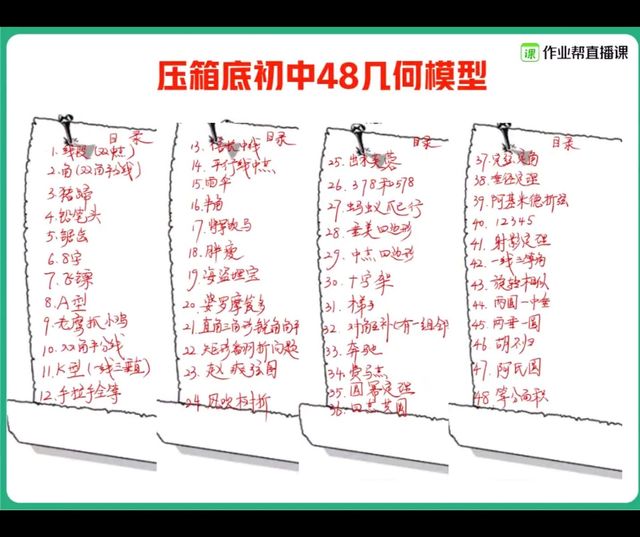 课 作业帮直播课
压箱底初中48几何模型
目录
1.线段(双中点)
2.角(双角平分线)
3.猪蹄
4.铅笔头
5.锯齿
6.8字
7.飞镖
8.A型
9.老鹰抓小鸡
10.双角平分线
11.K型(一线三垂直)
12.手拉手全等
目录
13.倍长中线
14.平行线中点
15.雨伞
16.半角
17.将军饮马
18.胖瘦
19.海盗埋宝
20.婆罗摩笈多
21.直角三角形锐角角平
22.矩形翻折问题
23.赵爽弦图
24.风吹树折
目录
25.出水芙蓉
26.378和578
27.蚂蚁爬行
28.垂美四边形
29.中点四边形
30.十字架
31.梯子
32.对角互补有一组邻
33.奔驰
34.费马点
35.圆幂定理
36.四点共圆
目录
37.定弦定角
38.垂径定理
39.阿基米德折弦
40.12345
41.射影定理
42.一线三等角
43.旋转相似
44.两圆一中垂
45.两垂一圆
46 胡不归
47.阿氏圆
48 等分面积